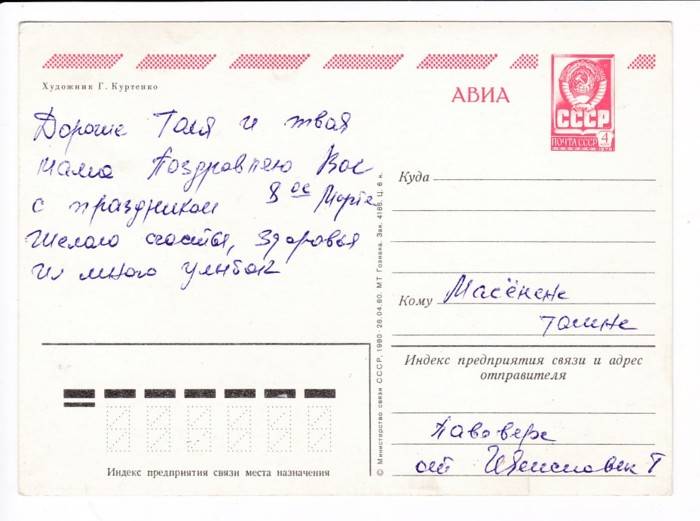 Художник Г. Куртенко
АВИА
СССР
ПОЧТА СССР
4
Дорогие Таля и твая
мама Поздравляю Вас
с праздником 8 ое Марта
Желаю счастья, здоровья
и много улыбок
Куда
Кому
Масёнкне
талине
Индекс предприятия связи и адрес
отправителя
от
Индекс предприятия связи места назначения
© Министерство связи СССР, 1980. 26.04.80. МТ Гознака. Зак. 4186. Ц. 6 к.